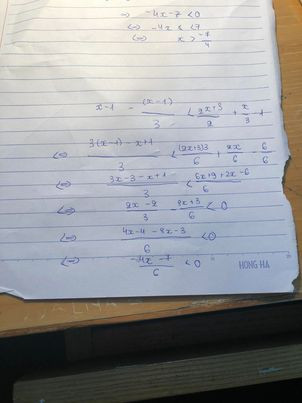 ⇔ -4x-7 < 0
⇔ -4x < 7
⇔ x > -7/4
x-1 - (x-1)/3 < (2x+3)/2 + x/3 - 1
⇔ (3(x-1) - x+1)/3 < ((2x+3)3)/6 + 2x/6 - 6/6
⇔ (3x-3-x+1)/3 < (6x+9+2x-6)/6
⇔ (2x-2)/3 - (8x+3)/6 < 0
⇔ (4x-4-8x-3)/6 < 0
⇔ (-4x-7)/6 < 0
HONG HA